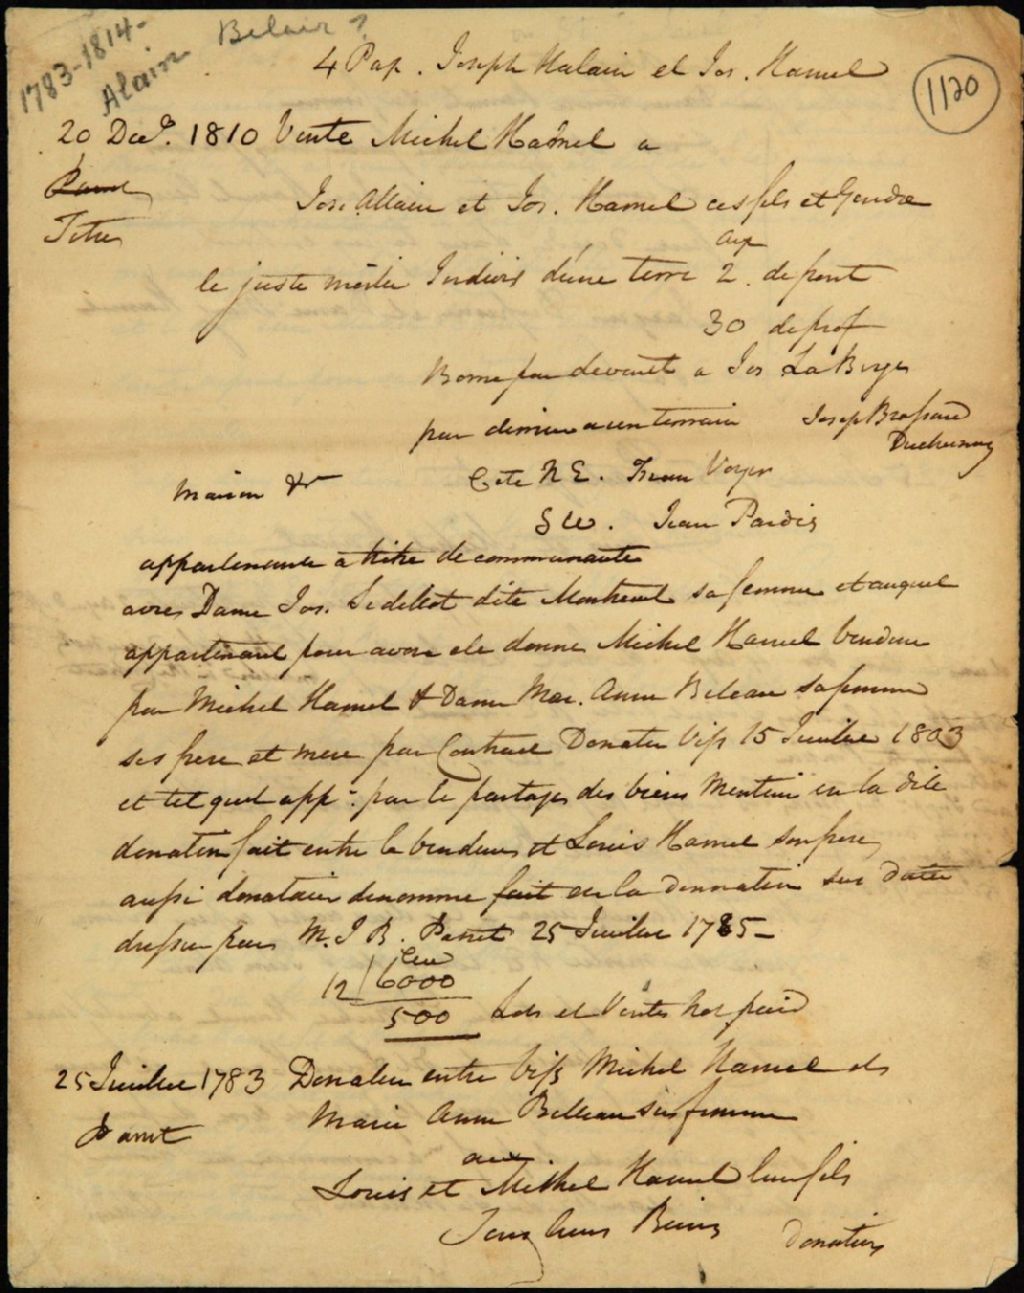 1783-1814-
Alain Belair ?
1120
4 Pap. Joseph Halain et Jos. Hamel
20 Dece. 1810 Vente Michel Hamel a
Titre
Jos. Allain et Jos. Hamel ces fils et Gendre
le juste moitie Indivis d'une terre 2 arp de front
30 de prof
Borne par devant a Jos LaBerge
par derriere a un terrain Josep Brassard
Duchesnay
Cote N E. Voyer
Maison &c
S W. Jean Pardis
appartenante a titre de communaute
avec Dame Jos. Sedilot dite Montreul sa femme et auquel
appartenant pour avoir ete donne Michel Hamel vendeur
par Michel Hamel & Dame Mar. Anne Beleau sa femme
ses pere et mere par Contract Donation Vifs 15 Juillet 1803
et tel quel app.t par le partage des biens Mention en la dite
donation fait entre le vendeur et Louis Hamel son frere
aussi donataire denomme fait en la donnation sus datee
dressee par M. J B. Panet 25 Juillet 1785-
12 | 6000
500 Lods et Ventes not paid
25 Juillet 1783 Donation entre Vifs Michel Hamel et
Panet
Marie Anne Belleau sa femme
aux
Louis et Michel Hamel leur fils
Tous leurs Biens